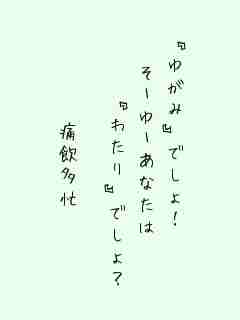 『ゆがみ』でしょ!
そーゆーあなたは
『わたり』でしょ?
痛飲多忙